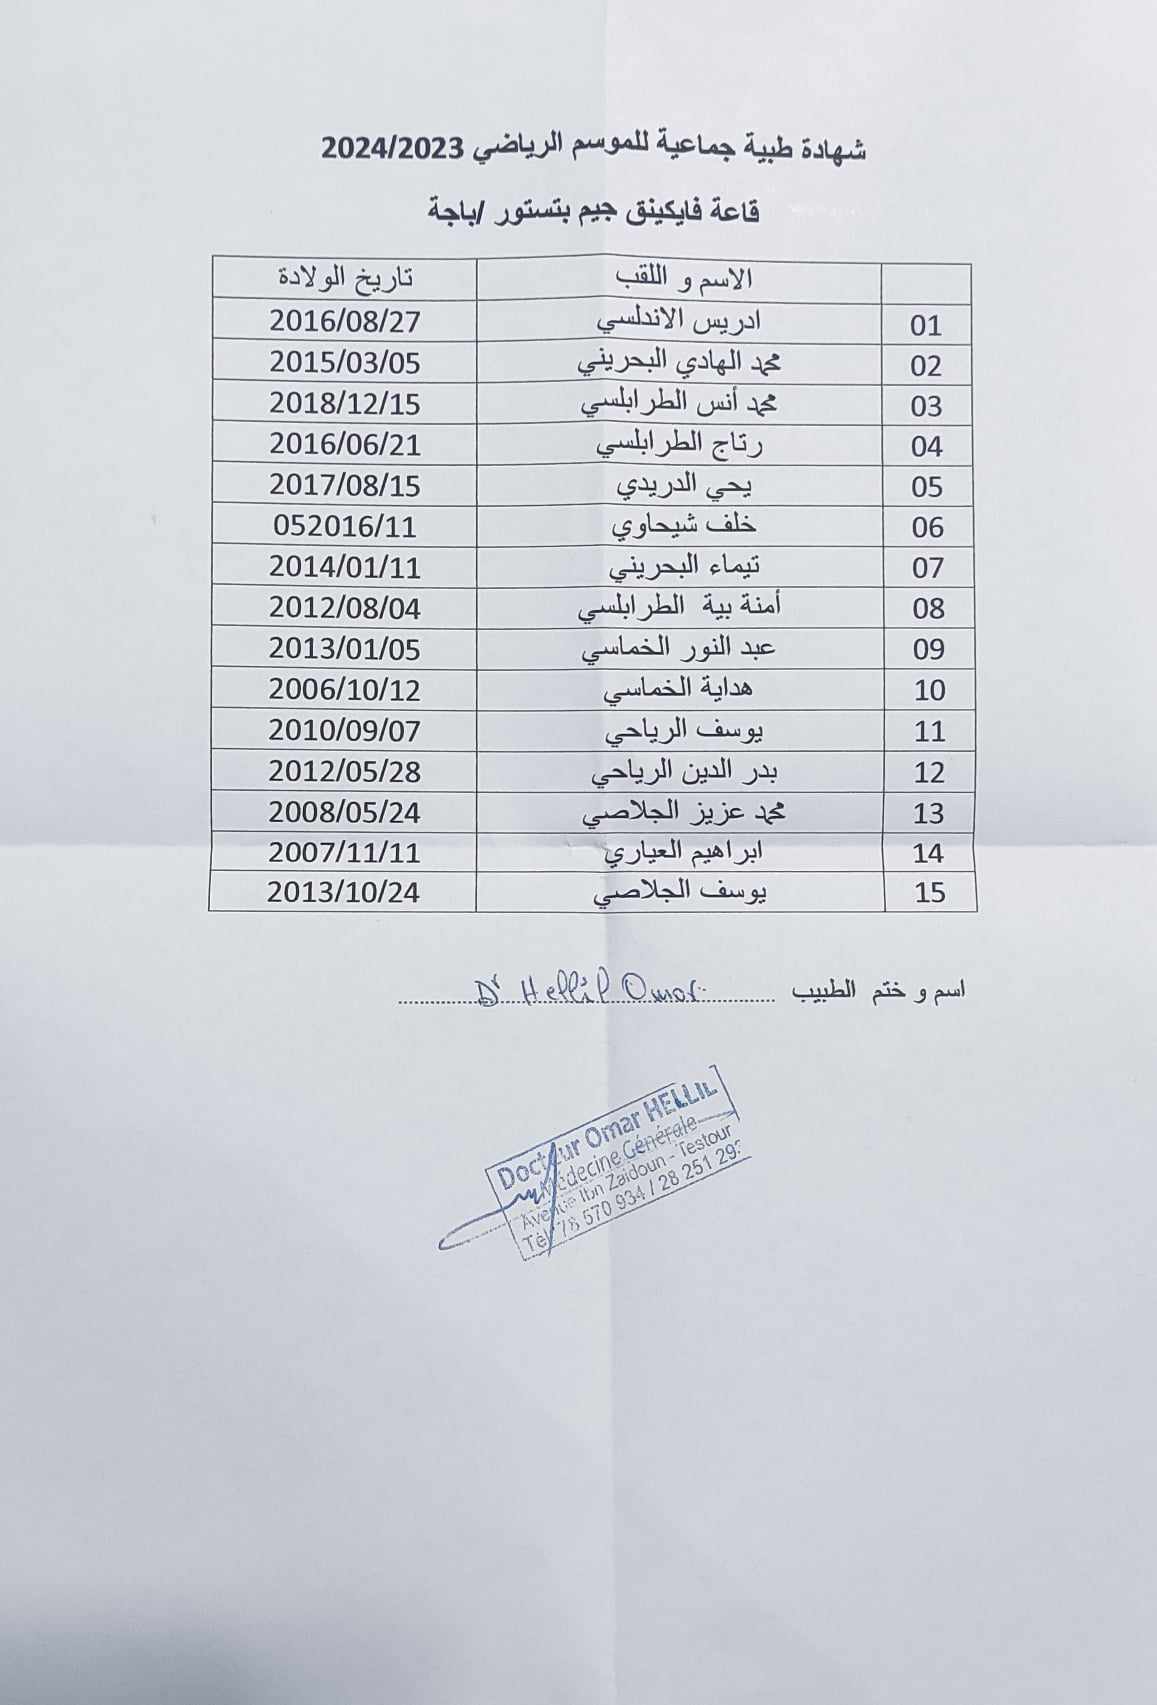 شهادة طبية جماعية للموسم الرياضي 2024/2023
قاعة فايكينق جيم بتستور /باجة
الاسم و اللقب تاريخ الولادة
01 ادريس الاندلسي 2016/08/27
02 محمد الهادي البحريني 2015/03/05
03 محمد أنس الطرابلسي 2018/12/15
04 رتاج الطرابلسي 2016/06/21
05 يحي الدريدي 2017/08/15
06 خلف شيحاوي 052016/11
07 تيماء البحريني 2014/01/11
08 أمنة بية الطرابلسي 2012/08/04
09 عبد النور الخماسي 2013/01/05
10 هداية الخماسي 2006/10/12
11 يوسف الرياحي 2010/09/07
12 بدر الدين الرياحي 2012/05/28
13 محمد عزيز الجلاصي 2008/05/24
14 ابراهيم العياري 2007/11/11
15 يوسف الجلاصي 2013/10/24
اسم و ختم الطبيب Dr Hellil Omar
Docteur Omar HELLIL
Médecine Générale
Avenue Ibn Zaidoun - Testour
Tél 78 570 934 / 28 251 29